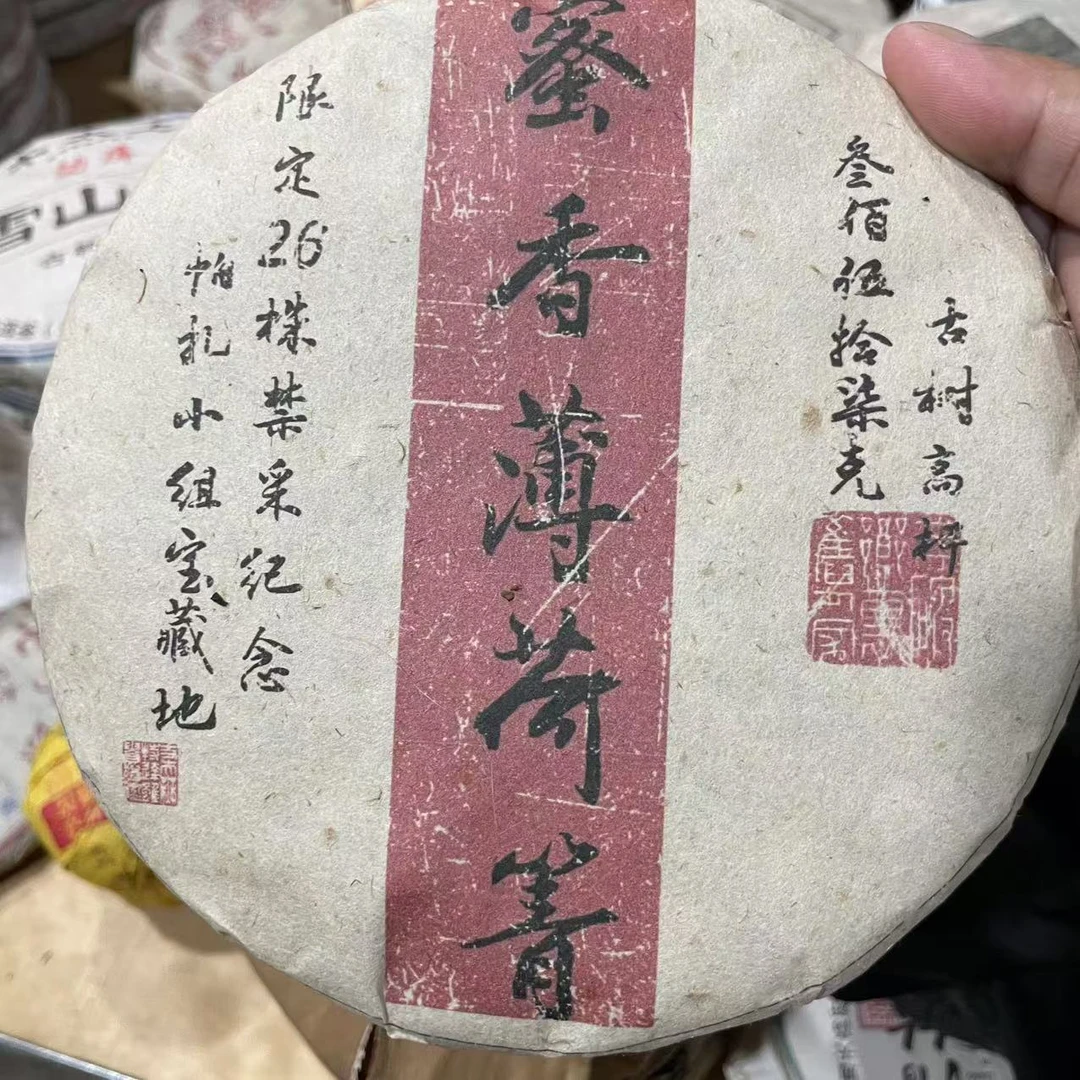 古树高杆
叁佰伍拾柒克
蜜香薄荷箐
限定26棵禁采纪念
帕扎小组宝藏地
雪山